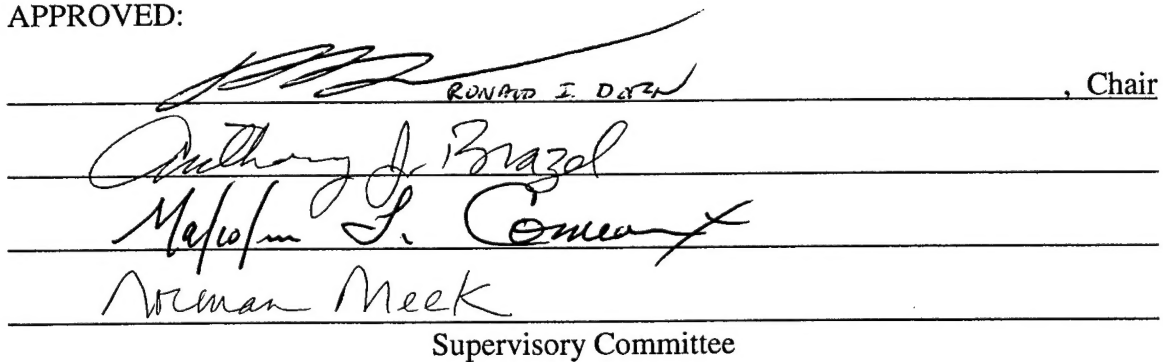 APPROVED:
RONALD I. DORN , Chair
Anthony J. Brazel
Malcolm L. Comeaux
Norman Meek
Supervisory Committee